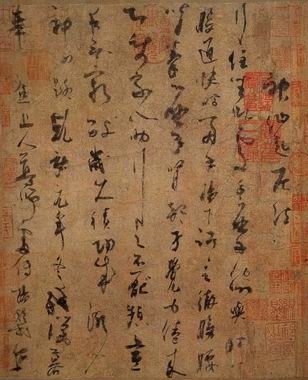 神仙起居法
行住坐卧處手摩脅與肚心
腹通快時兩手腸下踞踞之徹膀腰
背拳摩腎部才覺力倦來
即使家人助行之不厭頻晝
夜無窮數歲久積功成漸入
神仙路乾祐元年冬殘臘暮
華焦上人尊師處傳楊凝式